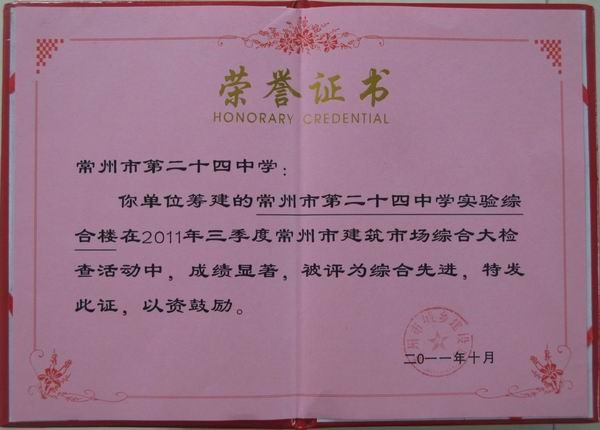 荣誉证书
HONORARY CREDENTIAL
常州市第二十四中学：
你单位筹建的常州市第二十四中学实验综
合楼在2011年三季度常州市建筑市场综合大检
查活动中，成绩显著，被评为综合先进，特发
此证，以资鼓励。
州市城乡建设
二0一一年十月